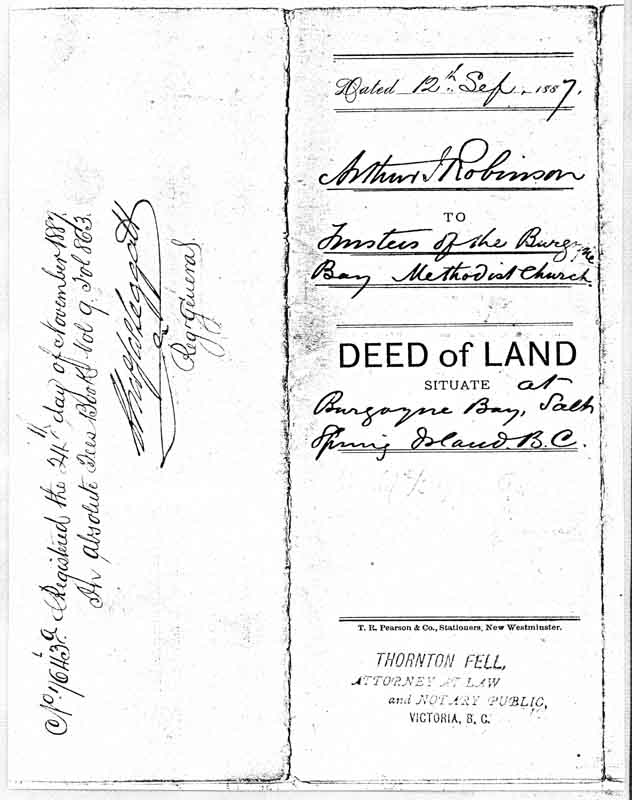 Dated 12th Sep. 1887.
Arthur J Robinson
TO
Trustees of the Burgoyne
Bay Methodist Church.
DEED of LAND
SITUATE at
Burgoyne Bay, Salt
Spring Island. B.C.
T. R. Pearson & Co., Stationers, New Westminster.
THORNTON FELL,
ATTORNEY AT LAW
and NOTARY PUBLIC,
VICTORIA, B. C.
Registered the 24th day of November 1887.
In absolute Fees Book Vol 9. Fol 863.
Regr General